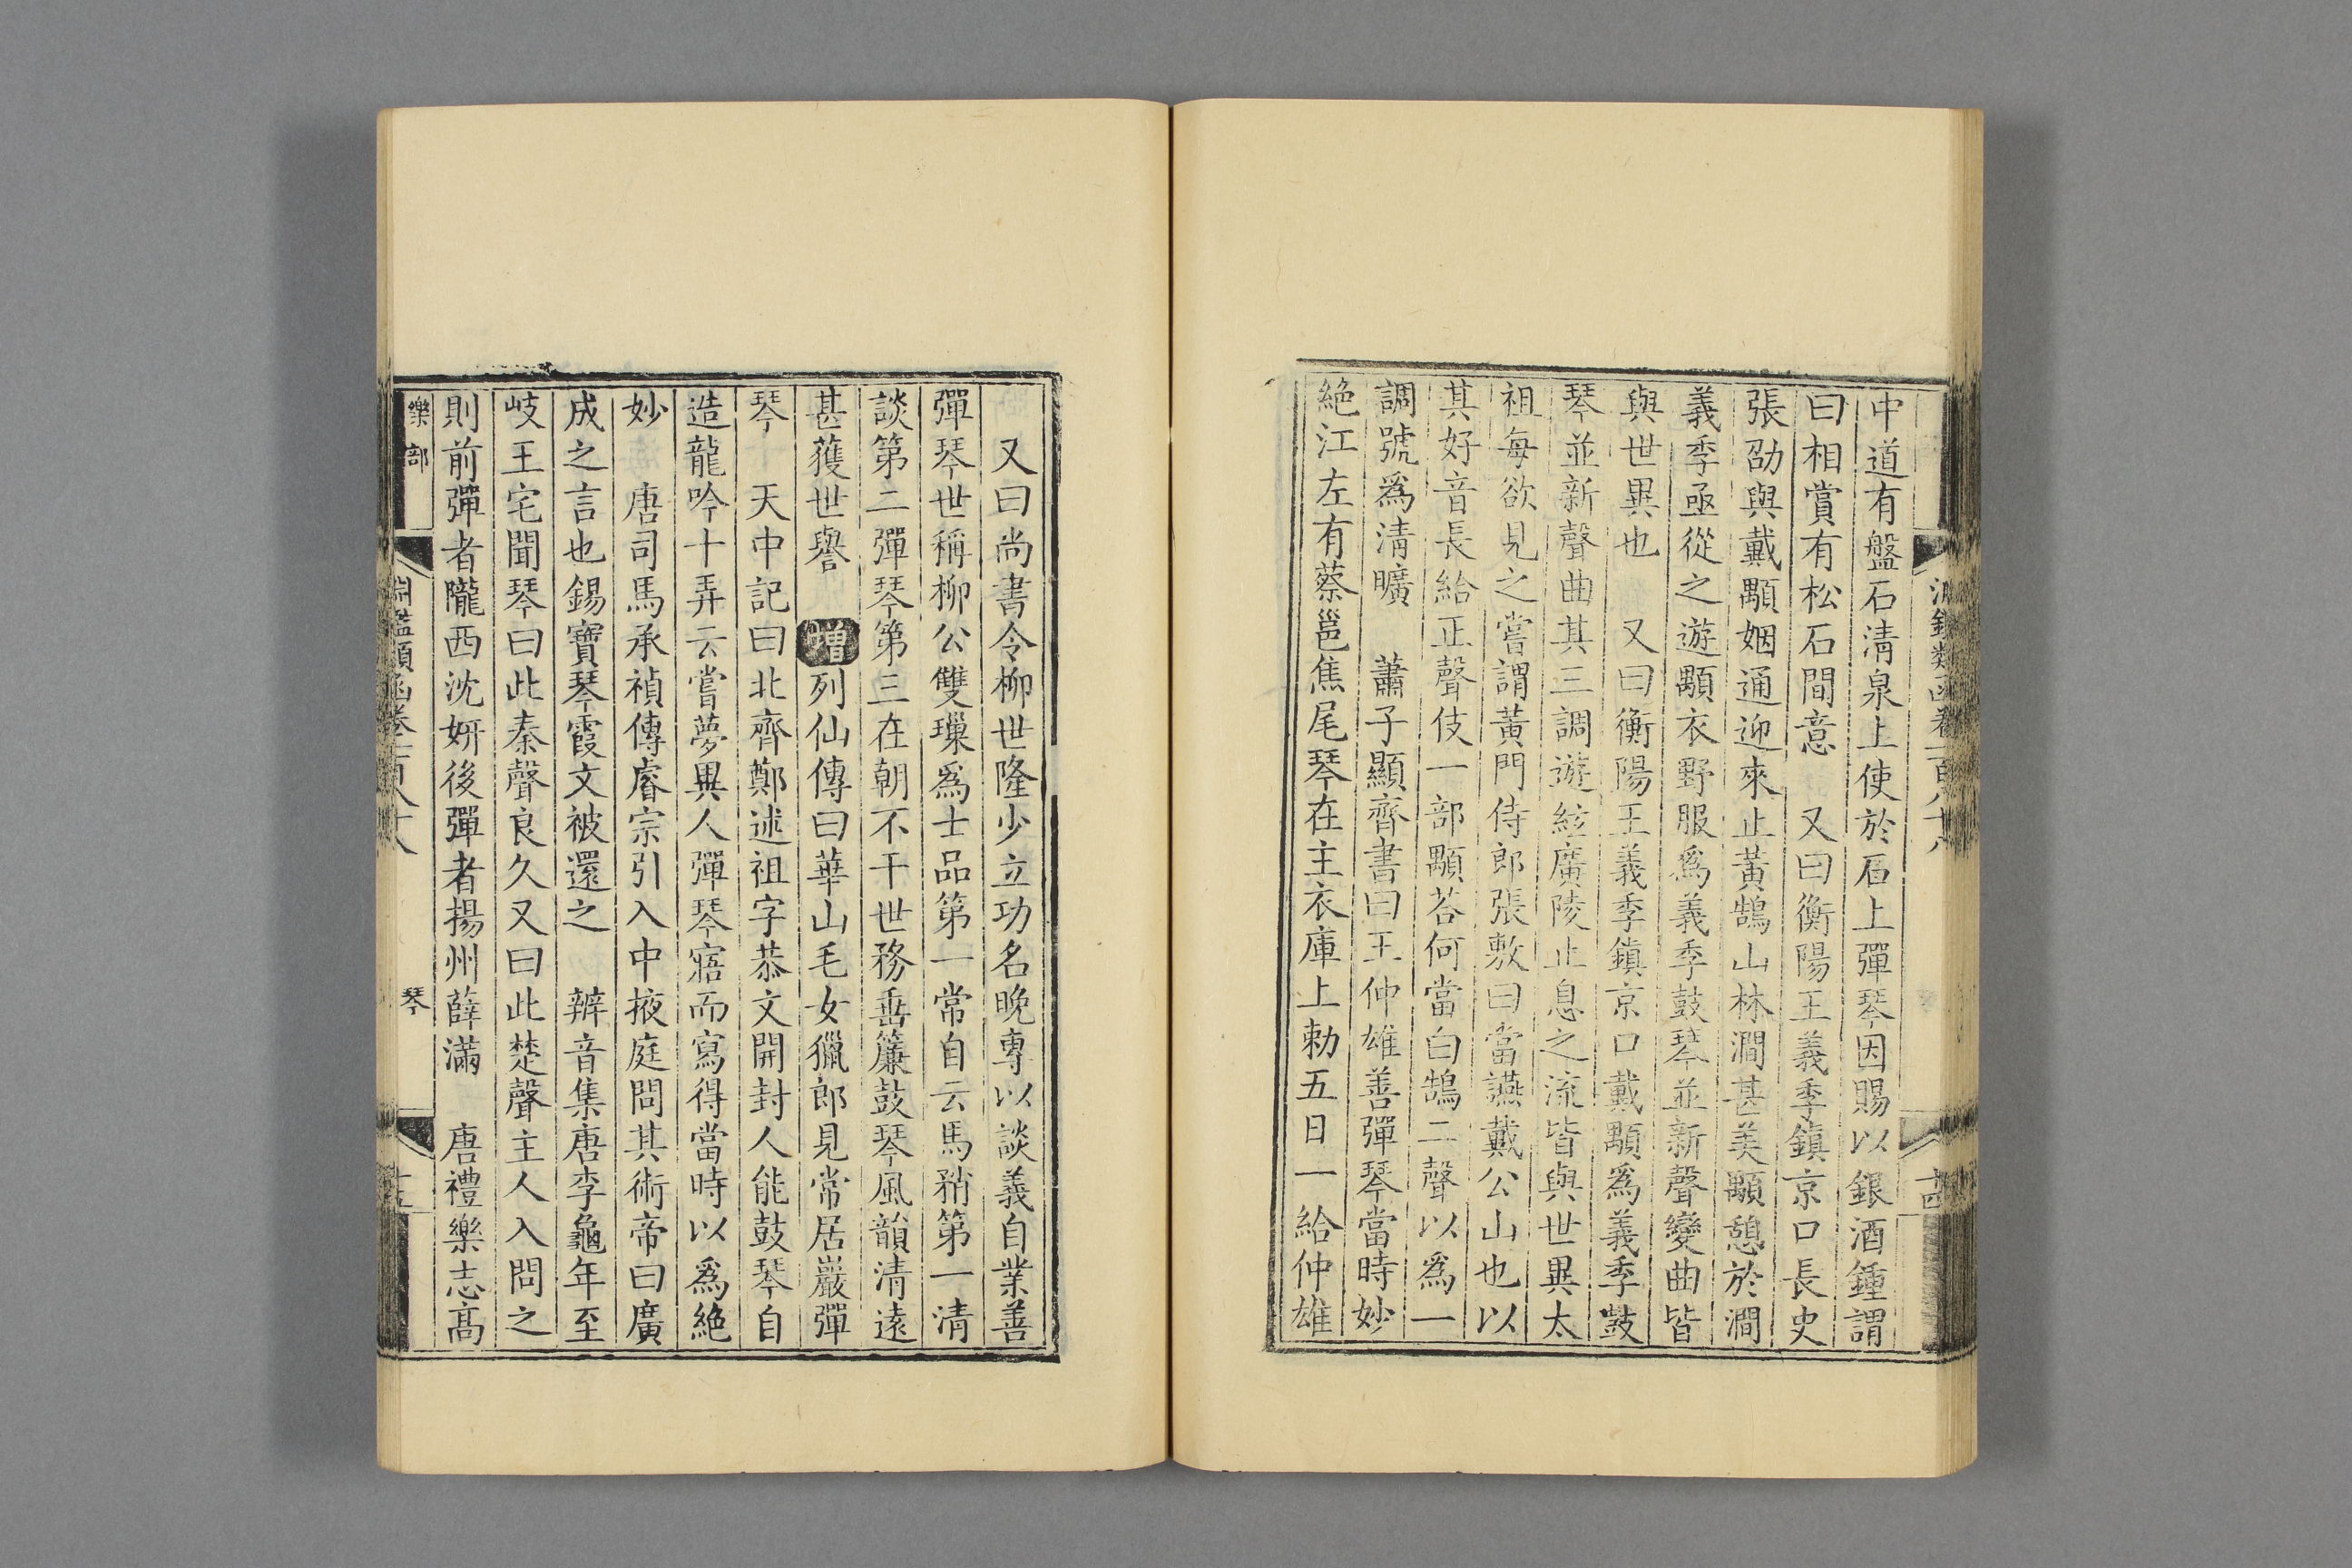 中道有盤石清泉上使於石上彈琴因賜以銀酒鍾謂
曰相賞有松石間意　又曰衡陽王義季鎮京口長史
張劭與戴顒姻通迎來止黃鵠山林澗甚美顒憩於澗
義季亟從之遊顒衣野服爲義季鼓琴並新聲變曲皆
與世異也　又曰衡陽王義季鎮京口戴顒爲義季鼓
琴並新聲曲其三調遊絃廣陵止息之流皆與世異太
祖每欲見之嘗謂黃門侍郎張敷曰當讌戴公山也以
其好音長給正聲伎一部顒荅何當白鵠二聲以爲一
調號爲清曠　蕭子顯齊書曰王仲雄善彈琴當時妙
絶江左有蔡邕焦尾琴在主衣庫上勅五日一給仲雄
又曰尚書令柳世隆少立功名晚專以談義自業善
彈琴世稱柳公雙璅爲士品第一常自云馬矟第一清
談第二彈琴第三在朝不干世務垂簾鼓琴風韻清遠
甚獲世譽　增列仙傳曰華山毛女獵郎見常居巖彈
琴　天中記曰北齊鄭述祖字恭文開封人能鼓琴自
造龍吟十弄云嘗夢異人彈琴寤而寫得當時以爲絶
妙　唐司馬承禎傳睿宗引入中掖庭問其術帝曰廣
成之言也錫寶琴霞文被還之　辨音集唐李龜年至
岐王宅聞琴曰此秦聲良久又曰此楚聲主人入問之
則前彈者隴西沈妍後彈者揚州薛滿　唐禮樂志高
樂部
淵鑑類函卷一百八十八
琴
十五